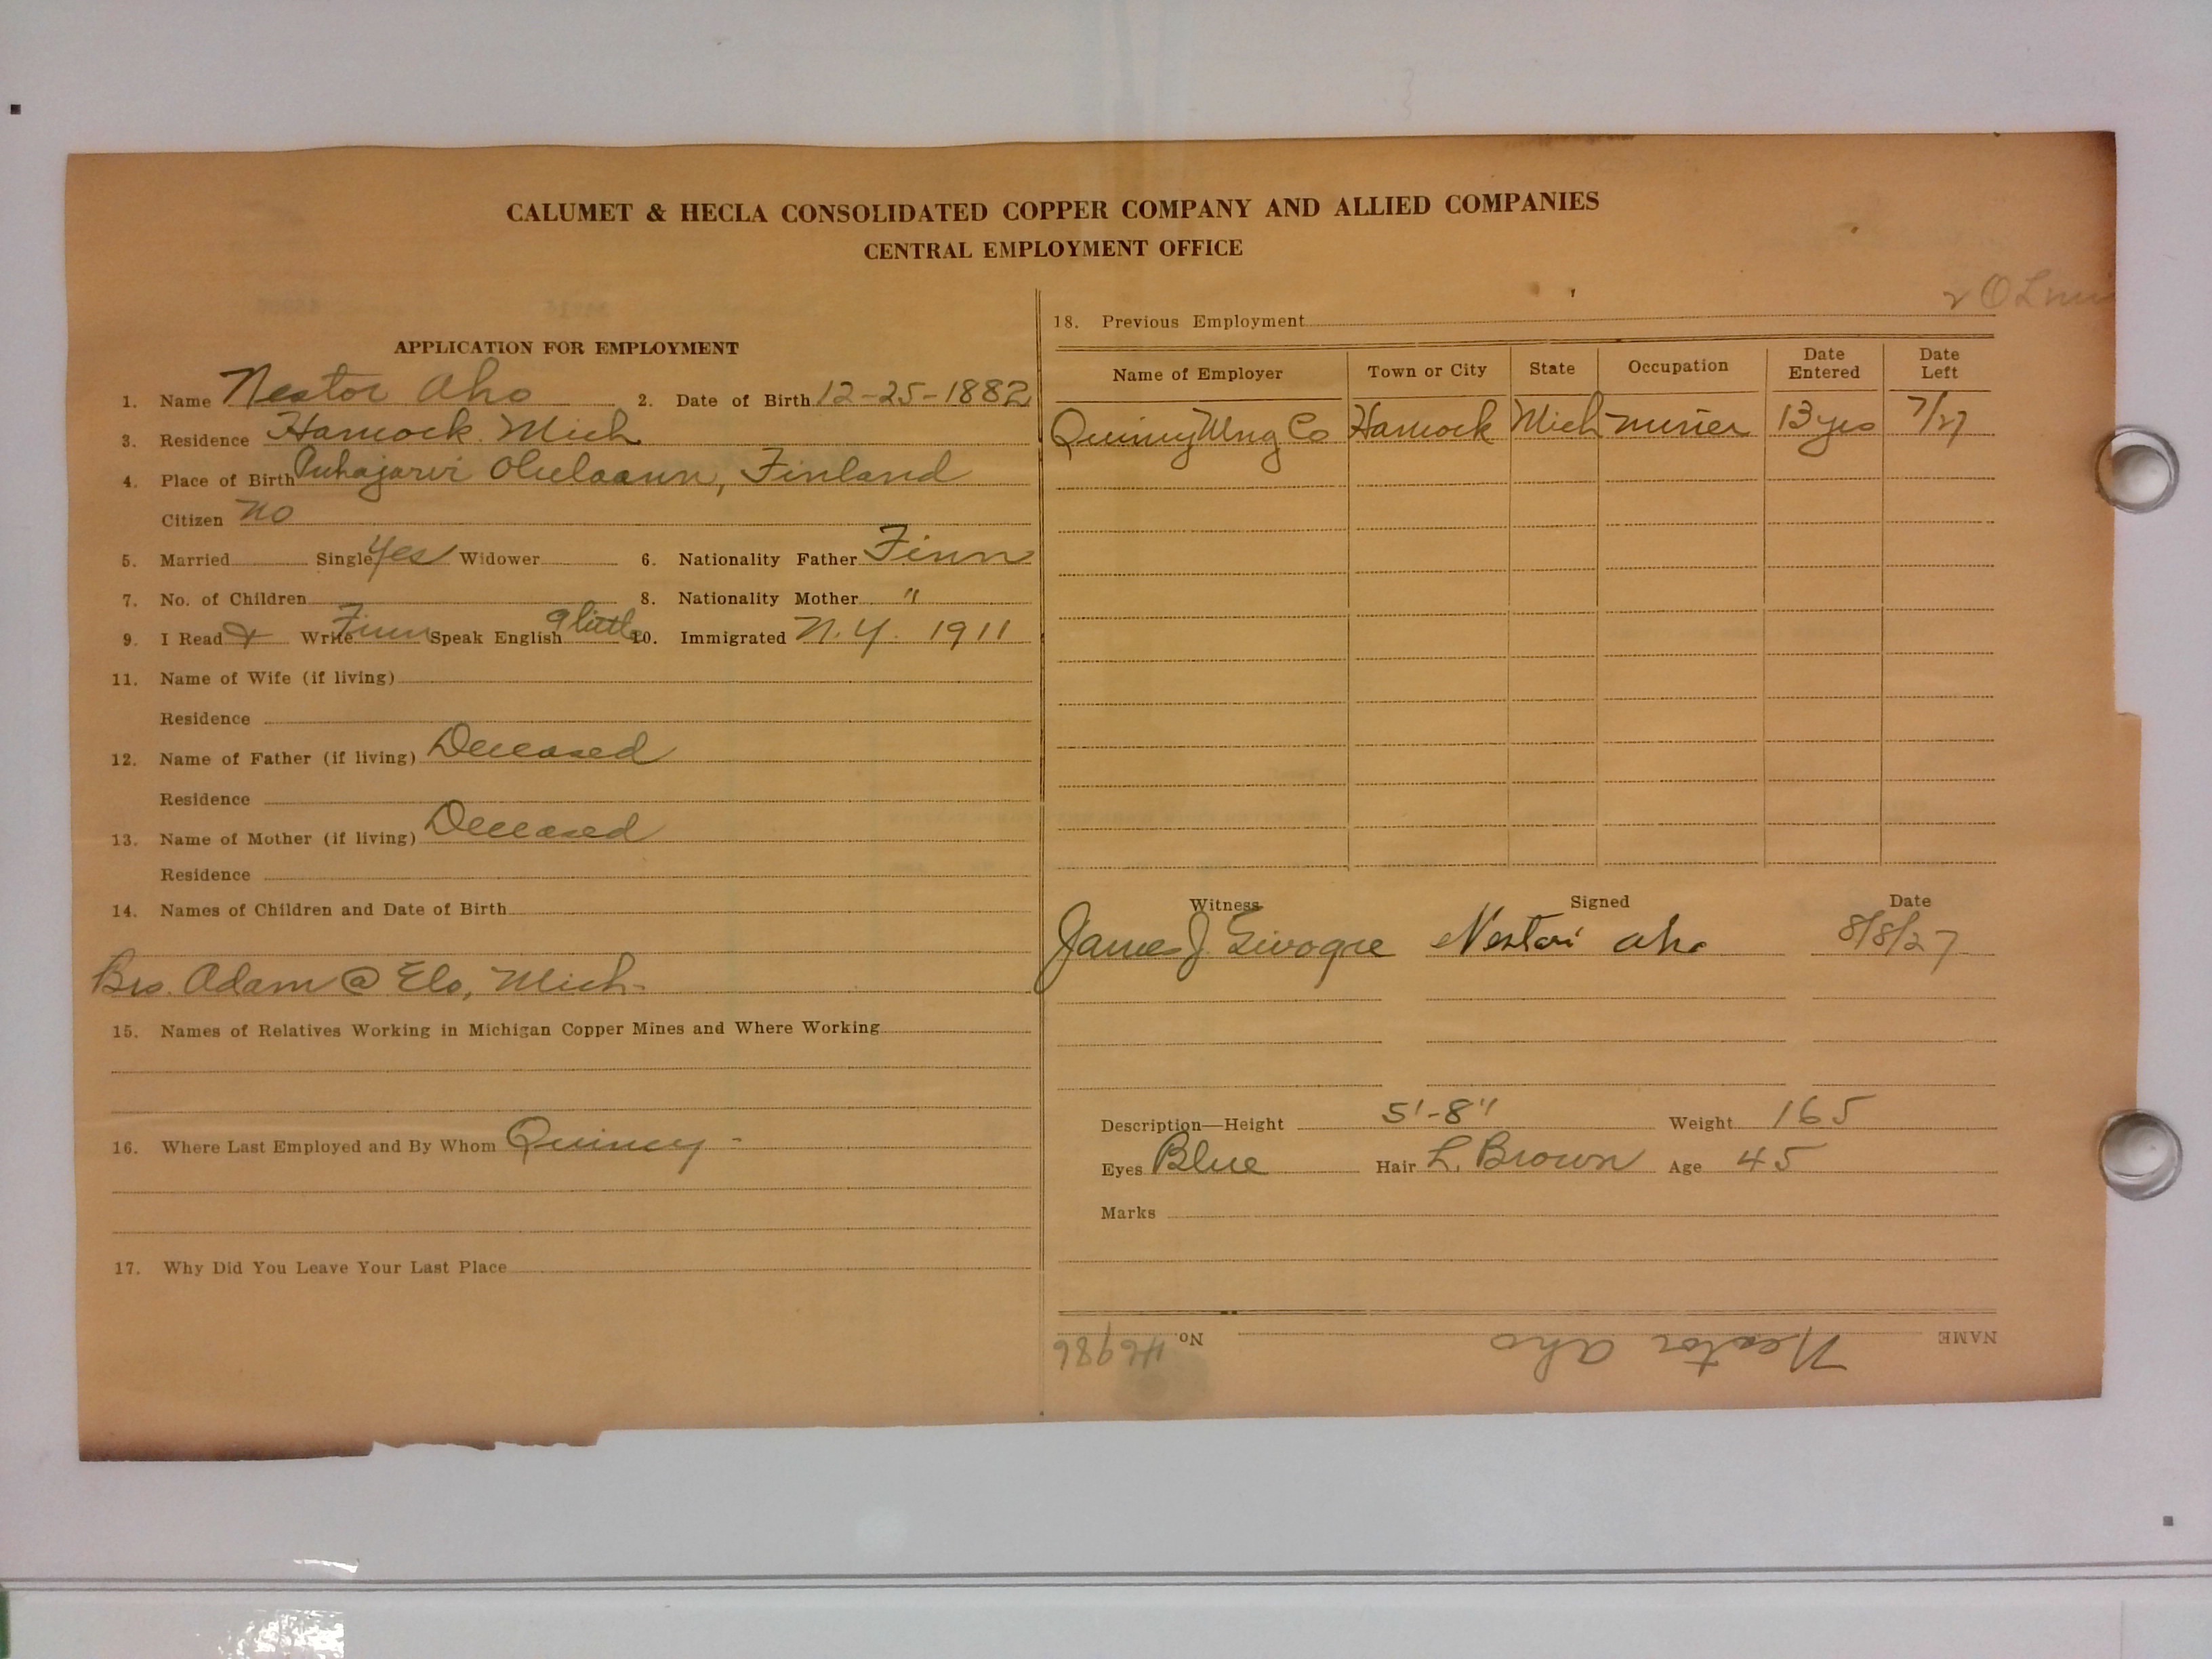 CALUMET & HECLA CONSOLIDATED COPPER COMPANY AND ALLIED COMPANIES
CENTRAL EMPLOYMENT OFFICE
APPLICATION FOR EMPLOYMENT
1. Name Nestor Aho 2. Date of Birth 12-25-1882
3. Residence Hancock. Mich
4. Place of Birth Finland
Citizen no
5. Married Single Yes Widower 6. Nationality Father Finn
7. No. of Children 8. Nationality Mother "
9. I Read & Write Finn Speak English a little 10. Immigrated N.Y. 1911
11. Name of Wife (if living)
Residence
12. Name of Father (if living) Deceased
Residence
13. Name of Mother (if living) Deceased
Residence
14. Names of Children and Date of Birth
Bro. Adam @ Elo, Mich.
15. Names of Relatives Working in Michigan Copper Mines and Where Working
16. Where Last Employed and By Whom Quincy -
17. Why Did You Leave Your Last Place
18. Previous Employment
Name of Employer Town or City State Occupation Date Entered Date Left
Quincy Mng Co Hancock Mich miner 13 yrs 7/27
Witness Signed Date
James J. Nestori Aho 8/8/27
Description—Height 5'-8" Weight 165
Eyes Blue Hair L. Brown Age 45
Marks
NAME Nestor Aho No. 46986